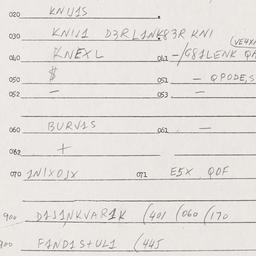 020 KNIJ1S
030 KNIJ1 D3RL1NK83R KNI
(VE4X
040 KNEXL 041 -/G81LENK QA
050 $ 051 - QPODE,S
052 - 053 -
060 BURV1S 061 -
062 +
070 1NIXOJX 071 E5X QOF
900 D1J1NKVAR1K (401 (060 (170
900 FAND1S+UL1 (445